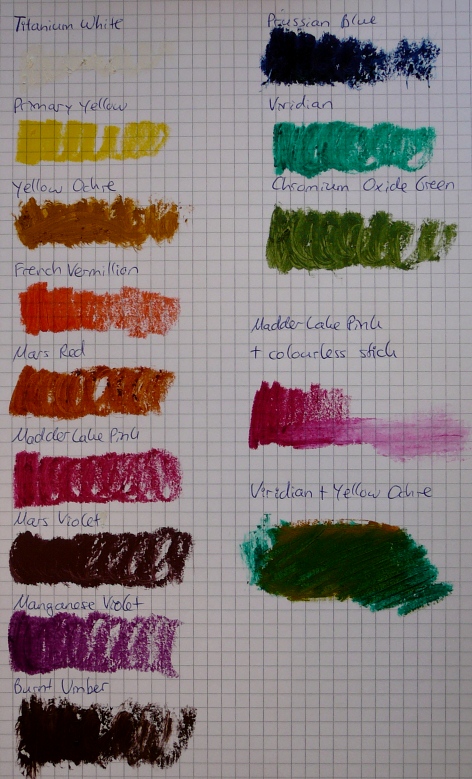 Titanium White
Primary Yellow
Yellow Ochre
French Vermillion
Mars Red
Madder Lake Pink
Mars Violet
Manganese Violet
Burnt Umber
Prussian Blue
Viridian
Chromium Oxide Green
Madder Lake Pink
+ colourless stick
Viridian + Yellow Ochre